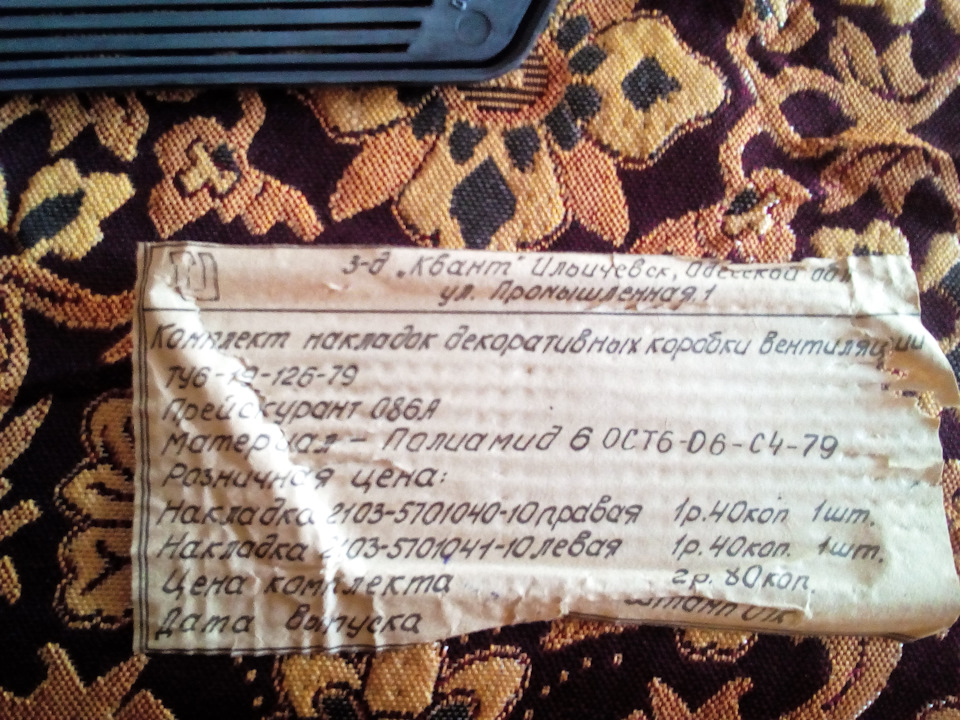 з-д „Квант" Ильичевск, Одесской обл
ул. Промышленная, 1
Комплект накладок декоративных коробки вентиляции
ТУ6-19-126-79
Прейскурант 086А
Материал - Полиамид 6 ОСТ6-06-С4-79
Розничная цена:
Накладка 2103-5701040-10 правая 1р.40коп 1шт.
Накладка 2103-5701041-10 левая 1р.40коп. 1шт.
Цена комплекта 2р. 80коп.
Штамп ОТК
Дата выпуска